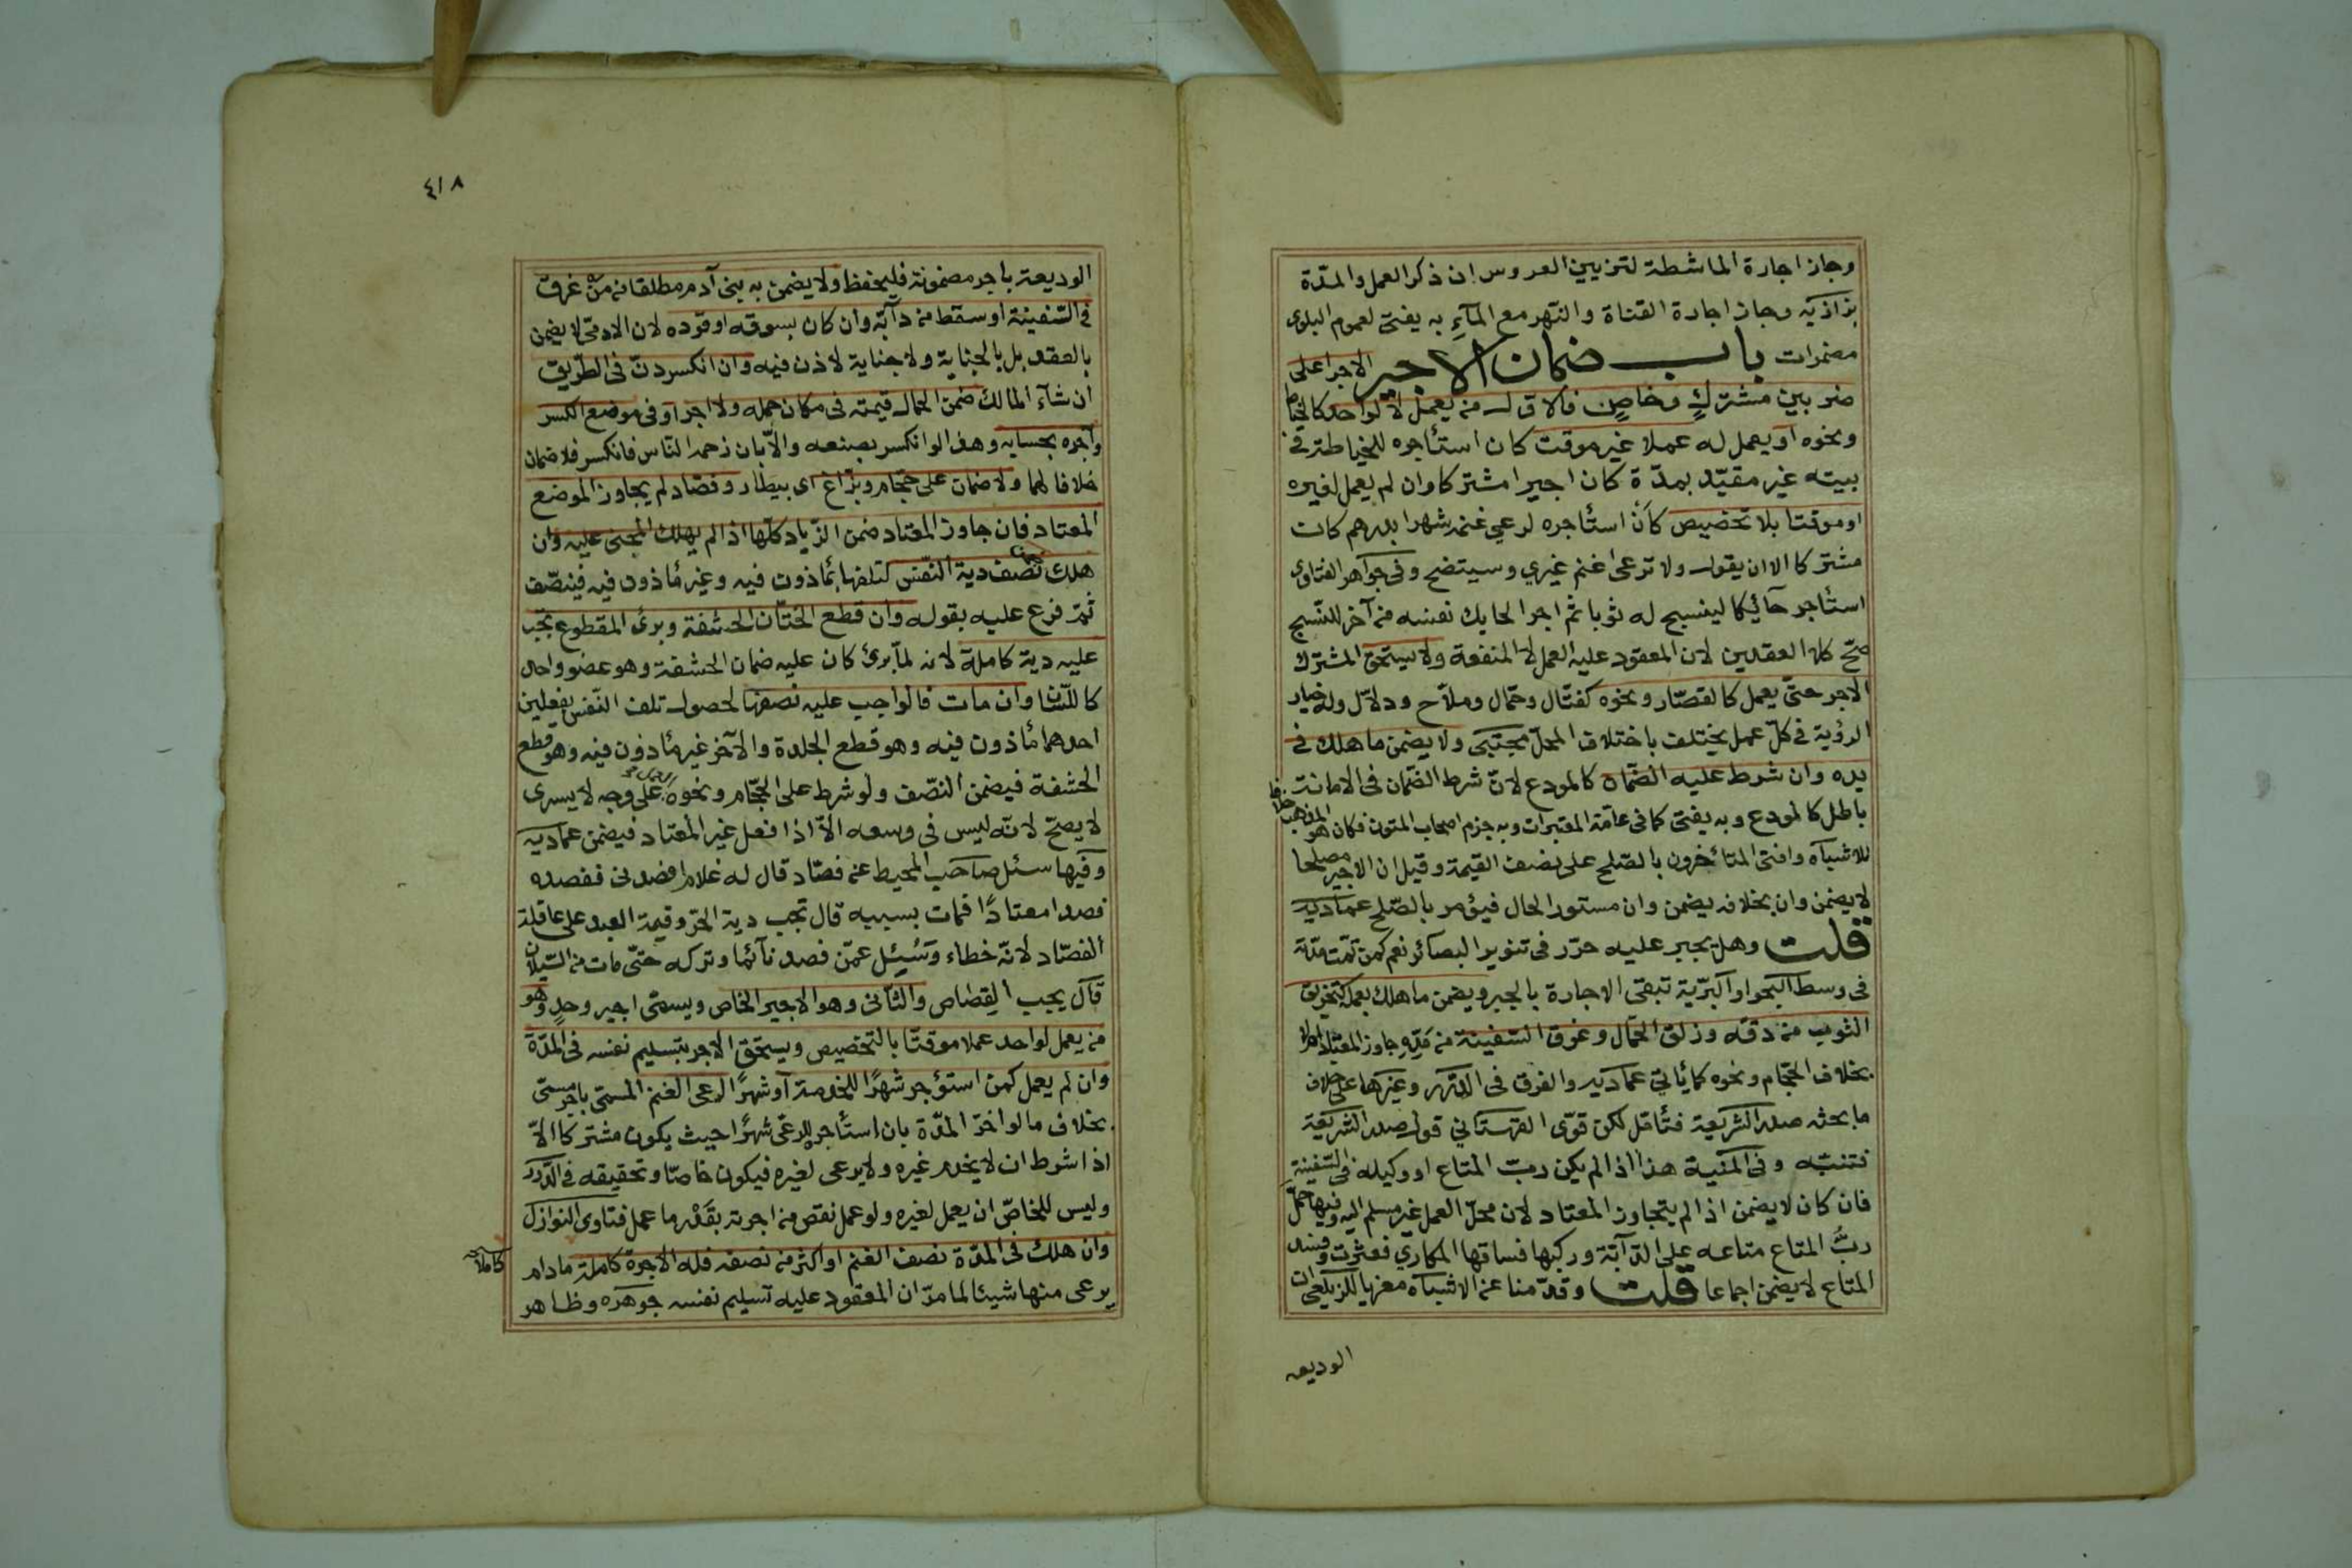 وجاز اجارة الماشطة لتزيين العروس ان ذكر العمل والمدّة
بزازيّه وجاز اجارة القناة والنّهر مع المآء به يفتى لعموم البلوى
مضمرات باب ضمان الاجير الاجراء على
ضربين مشترك وخاص فالاوّل من يعمل لا لواحد كالخياط
ونحوه او يعمل له عملا غير موقت كان استأجره للخياطة في
بيته غير مقيّد بمدّة كان اجيرا مشتركا وان لم يعمل لغيره
او موقتا بلا تخصيص كأن استأجره لرعي غنمه شهرا بدرهم كان
مشتركا الا ان يقول ولا ترعى غنم غيري وسيتضح وفي جواهر الفتاوى
استأجر حآئكا لينسج له ثوبا ثم اجر الحايك نفسه من آخر للنّسج
صحّ كلا العقدين لان المعقود عليه العمل لا المنفعة ولا يستحق المشترك
الاجر حتّى يعمل كالقصّار ونحوه كفتّال وحمّال وملّاح ودلاّل وله خيار
الرؤية في كلّ عمل يختلف باختلاف المحلّ مجتبى ولا يضمن ما هلك في
يده وان شرط عليه الضّمان كالمودع لانّ شرط الضّمان في الامانة
باطل كالمودع وبه يفتى كما في عامّة المعتبرات وبه جزم اصحاب المتون فكان هو المذهب خلافا
للاشباه وافتى المتأخرون بالصّلح على نصف القيمة وقيل ان الاجير مصلحا
لا يضمن وان بخلافه يضمن وان مستور الحال فيؤمر بالصّلح عماديه
قلت وهل يجبر عليه حرّر في تنوير البصائر نعم كمن تمّت مدّته
في وسط البحر او البرّية تبقى الاجارة بالجبر ويضمن ما هلك بعمله كتخريق
الثوب من دقّه وزلق الحمّال وغرق السّفينة من مدّه جاوز المعتاد ام لا
بخلاف الحجّام ونحوه كما يأتي عماديه والفرق في الدّرر وغيرها على خلاف
ما بحثه صدر الشريعة فتأمّل لكن قوّى القهستاني قول صدر الشريعة
فتنبّه وفي المنية هذا اذا لم يكن ربّ المتاع او وكيله في السّفينة
فان كان لا يضمن اذا لم يتجاوز المعتاد لان محلّ العمل غير مسلم اليه وفيها حمل
ربُّ المتاع متاعه على الدّآبّة وركبها فساقها المكاري فعثرت وفسد
المتاع لا يضمن اجماعا قلت وقدّمنا عن الاشباه معزيا للزيلعي ان
الوديعه
٤١٨
الوديعة باجر مضمونة فليحفظ ولا يضمن به بني آدم مطلقا من غرق
في السّفينة او سقط من دآبّة وان كان بسوقه او قوده لان الادميّ لا يضمن
بالعقد بل بالجناية ولا جناية لاذن فيه وان انكسر دنّ في الطّريق
ان شآء المالك ضمن الحمال قيمته في مكان حمله ولا اجر او في موضع الكسر
وآجره بحسابه وهذا لو انكسر بصنعه والاّ بان زحمه النّاس فانكسر فلا ضمان
خلافا لهما ولا ضمان على حجّام وبزّاغ اى بيطار وفصّاد لم يجاوز الموضع
المعتاد فان جاوز المعتاد ضمن الزّياد كلّها اذا لم يهلك المجنى عليه وان
هلك نصف دية النّفس لتلفها بمأذون فيه وغير مأذون فيه فينصّف
ثمّ فرع عليه بقوله وان قطع الختّان الحشفة وبرئ المقطوع تجب
عليه دية كاملة لانه لمّا برئ كان عليه ضمان الحشفة وهو عضو واحد
كاللّسان وان مات فالواجب عليه نصفها لحصول تلف النّفس بفعلين
احدهما مأذون فيه وهو قطع الجلدة والآخر غير مأذون فيه وهو قطع
الحشفة فيضمن النّصف ولو شرط على الحجّام ونحوه على وجه لا يسرى
لا يصحّ لانّه ليس في وسعه الاّ اذا فعل غير المعتاد فيضمن عماديه
وفيها سئل صاحب المحيط عن فصّاد قال له غلام افصدني ففصده
فصدا معتادًا فمات بسببه قال تجب دية الحرّ وقيمة العبد على عاقلة
الفصّاد لانّه خطاء وسُئل عمّن فصد نآئما وتركه حتّى مات من السّيلان
قال يجب القصاص والثّاني وهو الاجير الخاص ويسمّى اجير وحد وهو
من يعمل لواحد عملا موقتا بالتخصيص ويستحق الاجر بتسليم نفسه في المدّة
وان لم يعمل كمن استؤجر شهرًا للخدمة او شهرًا لرعى الغنم المسمّى باجر مسمّى
بخلاف ما لو اخرّ المدّة بان استأجره للرعى شهرًا حيث يكون مشتركا الاّ
اذا شرط ان لا يخدم غيره ولا يرعى لغيره فيكون خاصّا وتحقيقه في الدّرر
وليس للخاصّ ان يعمل لغيره ولو عمل نقص من اجرته بقدر ما عمل فتاوى النوازل
وان هلك في المدّة نصف الغنم او اكثر من نصفه فله الاجرة كاملة ما دام
كاملا
يرعى منها شيئا لما مرّ ان المعقود عليه تسليم نفسه جوهره وظاهر